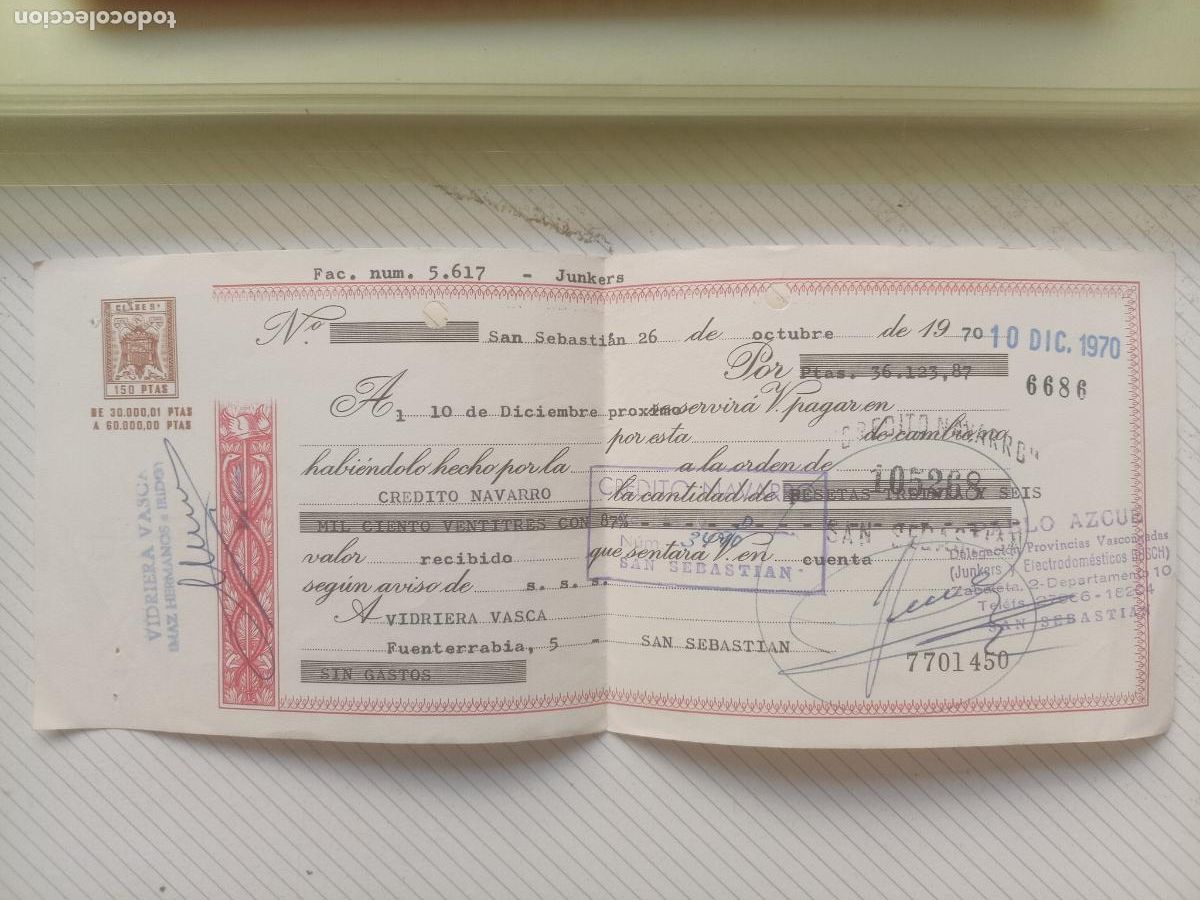 todocoleccion
Fac. num. 5.617 - Junkers
CLASE 8ª
150 PTAS
DE 30.000,01 PTAS
A 60.000,00 PTAS
Nº San Sebastián 26 de octubre de 19 70 10 DIC. 1970
Por Ptas. 36.123,87
6686
Al 10 de Diciembre proximo se servirá V. pagar en
por esta de cambio, no
habiéndolo hecho por la a la orden de
CREDITO NAVARRO la cantidad de PESETAS TREINTA Y SEIS
MIL CIENTO VENTITRES CON 87%- - - - - -
valor recibido que sentará V. en cuenta
según aviso de s. s. s.
A VIDRIERA VASCA
Fuenterrabia, 5 - SAN SEBASTIAN
SIN GASTOS
7701450
CREDITO NAVARRO
Núm.
SAN SEBASTIAN
CREDITO NAVARRO"
105268
SAN SEBASTIAN
PABLO AZCUE
Delegación Provincias Vascongadas
(Junkers y Electrodomésticos BOSCH)
2-Departamento 10
Teléfs.
SAN SEBASTIAN
VIDRIERA VASCA
IMAZ HERMANOS